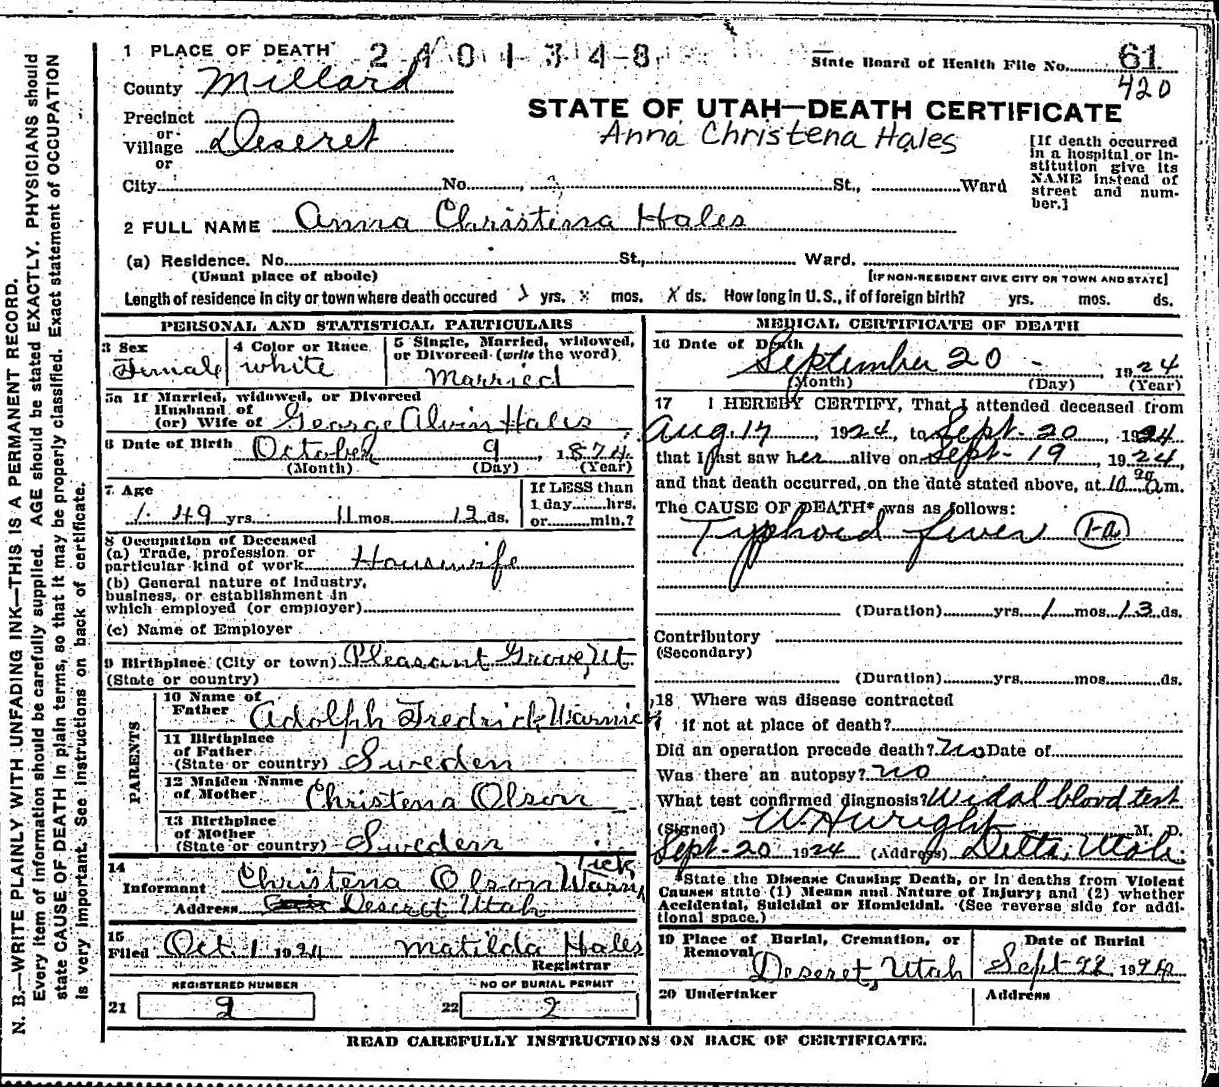 1 PLACE OF DEATH 2401348 State Board of Health File No. 61
420
County Millard
STATE OF UTAH—DEATH CERTIFICATE
Anna Christena Hales
Precinct
or
Village Deseret
or
City No. , St., Ward
[If death occurred in a hospital or institution give its NAME instead of street and number.]
2 FULL NAME Anna Christina Hales
(a) Residence. No. St., Ward.
(Usual place of abode) [IF NON-RESIDENT GIVE CITY OR TOWN AND STATE]
Length of residence in city or town where death occured yrs. x mos. x ds. How long in U. S., if of foreign birth? yrs. mos. ds.
PERSONAL AND STATISTICAL PARTICULARS
3 Sex 4 Color or Race 5 Single, Married, widowed, or Divorced (write the word)
Female white Married
5a If Married, widowed, or Divorced
Husband of
(or) Wife of George Alvin Hales
6 Date of Birth October 9, 1874
(Month) (Day) (Year)
7 Age If LESS than
1 day hrs.
49 yrs. 11 mos. 12 ds. or min.?
8 Occupation of Deceased
(a) Trade, profession or
particular kind of work Housewife
(b) General nature of Industry,
business, or establishment in
which employed (or employer)
(c) Name of Employer
9 Birthplace (City or town) Pleasant Grove, Ut
(State or country)
PARENTS
10 Name of
Father Adolph Fredrick Warnick
11 Birthplace
of Father
(State or country) Sweden
12 Maiden Name
of Mother Christena Olson
13 Birthplace
of Mother
(State or country) Sweden
14
Informant Christena Olson Warnick
Address Deseret Utah
15
Filed Oct. 1 1924 Matilda Hales
Registrar
REGISTERED NUMBER NO OF BURIAL PERMIT
21 2 22 2
MEDICAL CERTIFICATE OF DEATH
16 Date of Death
September 20 1924
(Month) (Day) (Year)
17 I HEREBY CERTIFY, That I attended deceased from
Aug. 17, 1924, to Sept. 20, 1924
that I last saw her alive on Sept. 19, 1924,
and that death occurred, on the date stated above, at 10 20 a.m.
The CAUSE OF DEATH* was as follows:
Typhoid fever 1-a
(Duration) yrs. 1 mos. 13 ds.
Contributory
(Secondary)
(Duration) yrs. mos. ds.
18 Where was disease contracted
if not at place of death?
Did an operation precede death? no Date of
Was there an autopsy? no
What test confirmed diagnosis? Widal blood test
(Signed) W H Wright M. D.
Sept. 20 1924 (Address) Delta, Utah.
*State the Disease Causing Death, or in deaths from Violent
Causes state (1) Means and Nature of Injury; and (2) whether
Accidental, Suicidal or Homicidal. (See reverse side for additional space.)
19 Place of Burial, Cremation, or Removal Date of Burial
Deseret, Utah Sept 22 1924
20 Undertaker Address
READ CAREFULLY INSTRUCTIONS ON BACK OF CERTIFICATE.
N. B.—WRITE PLAINLY WITH UNFADING INK—THIS IS A PERMANENT RECORD.
Every item of information should be carefully supplied. AGE should be stated EXACTLY. PHYSICIANS should
state CAUSE OF DEATH in plain terms, so that it may be properly classified. Exact statement of OCCUPATION
is very important. See instructions on back of certificate.